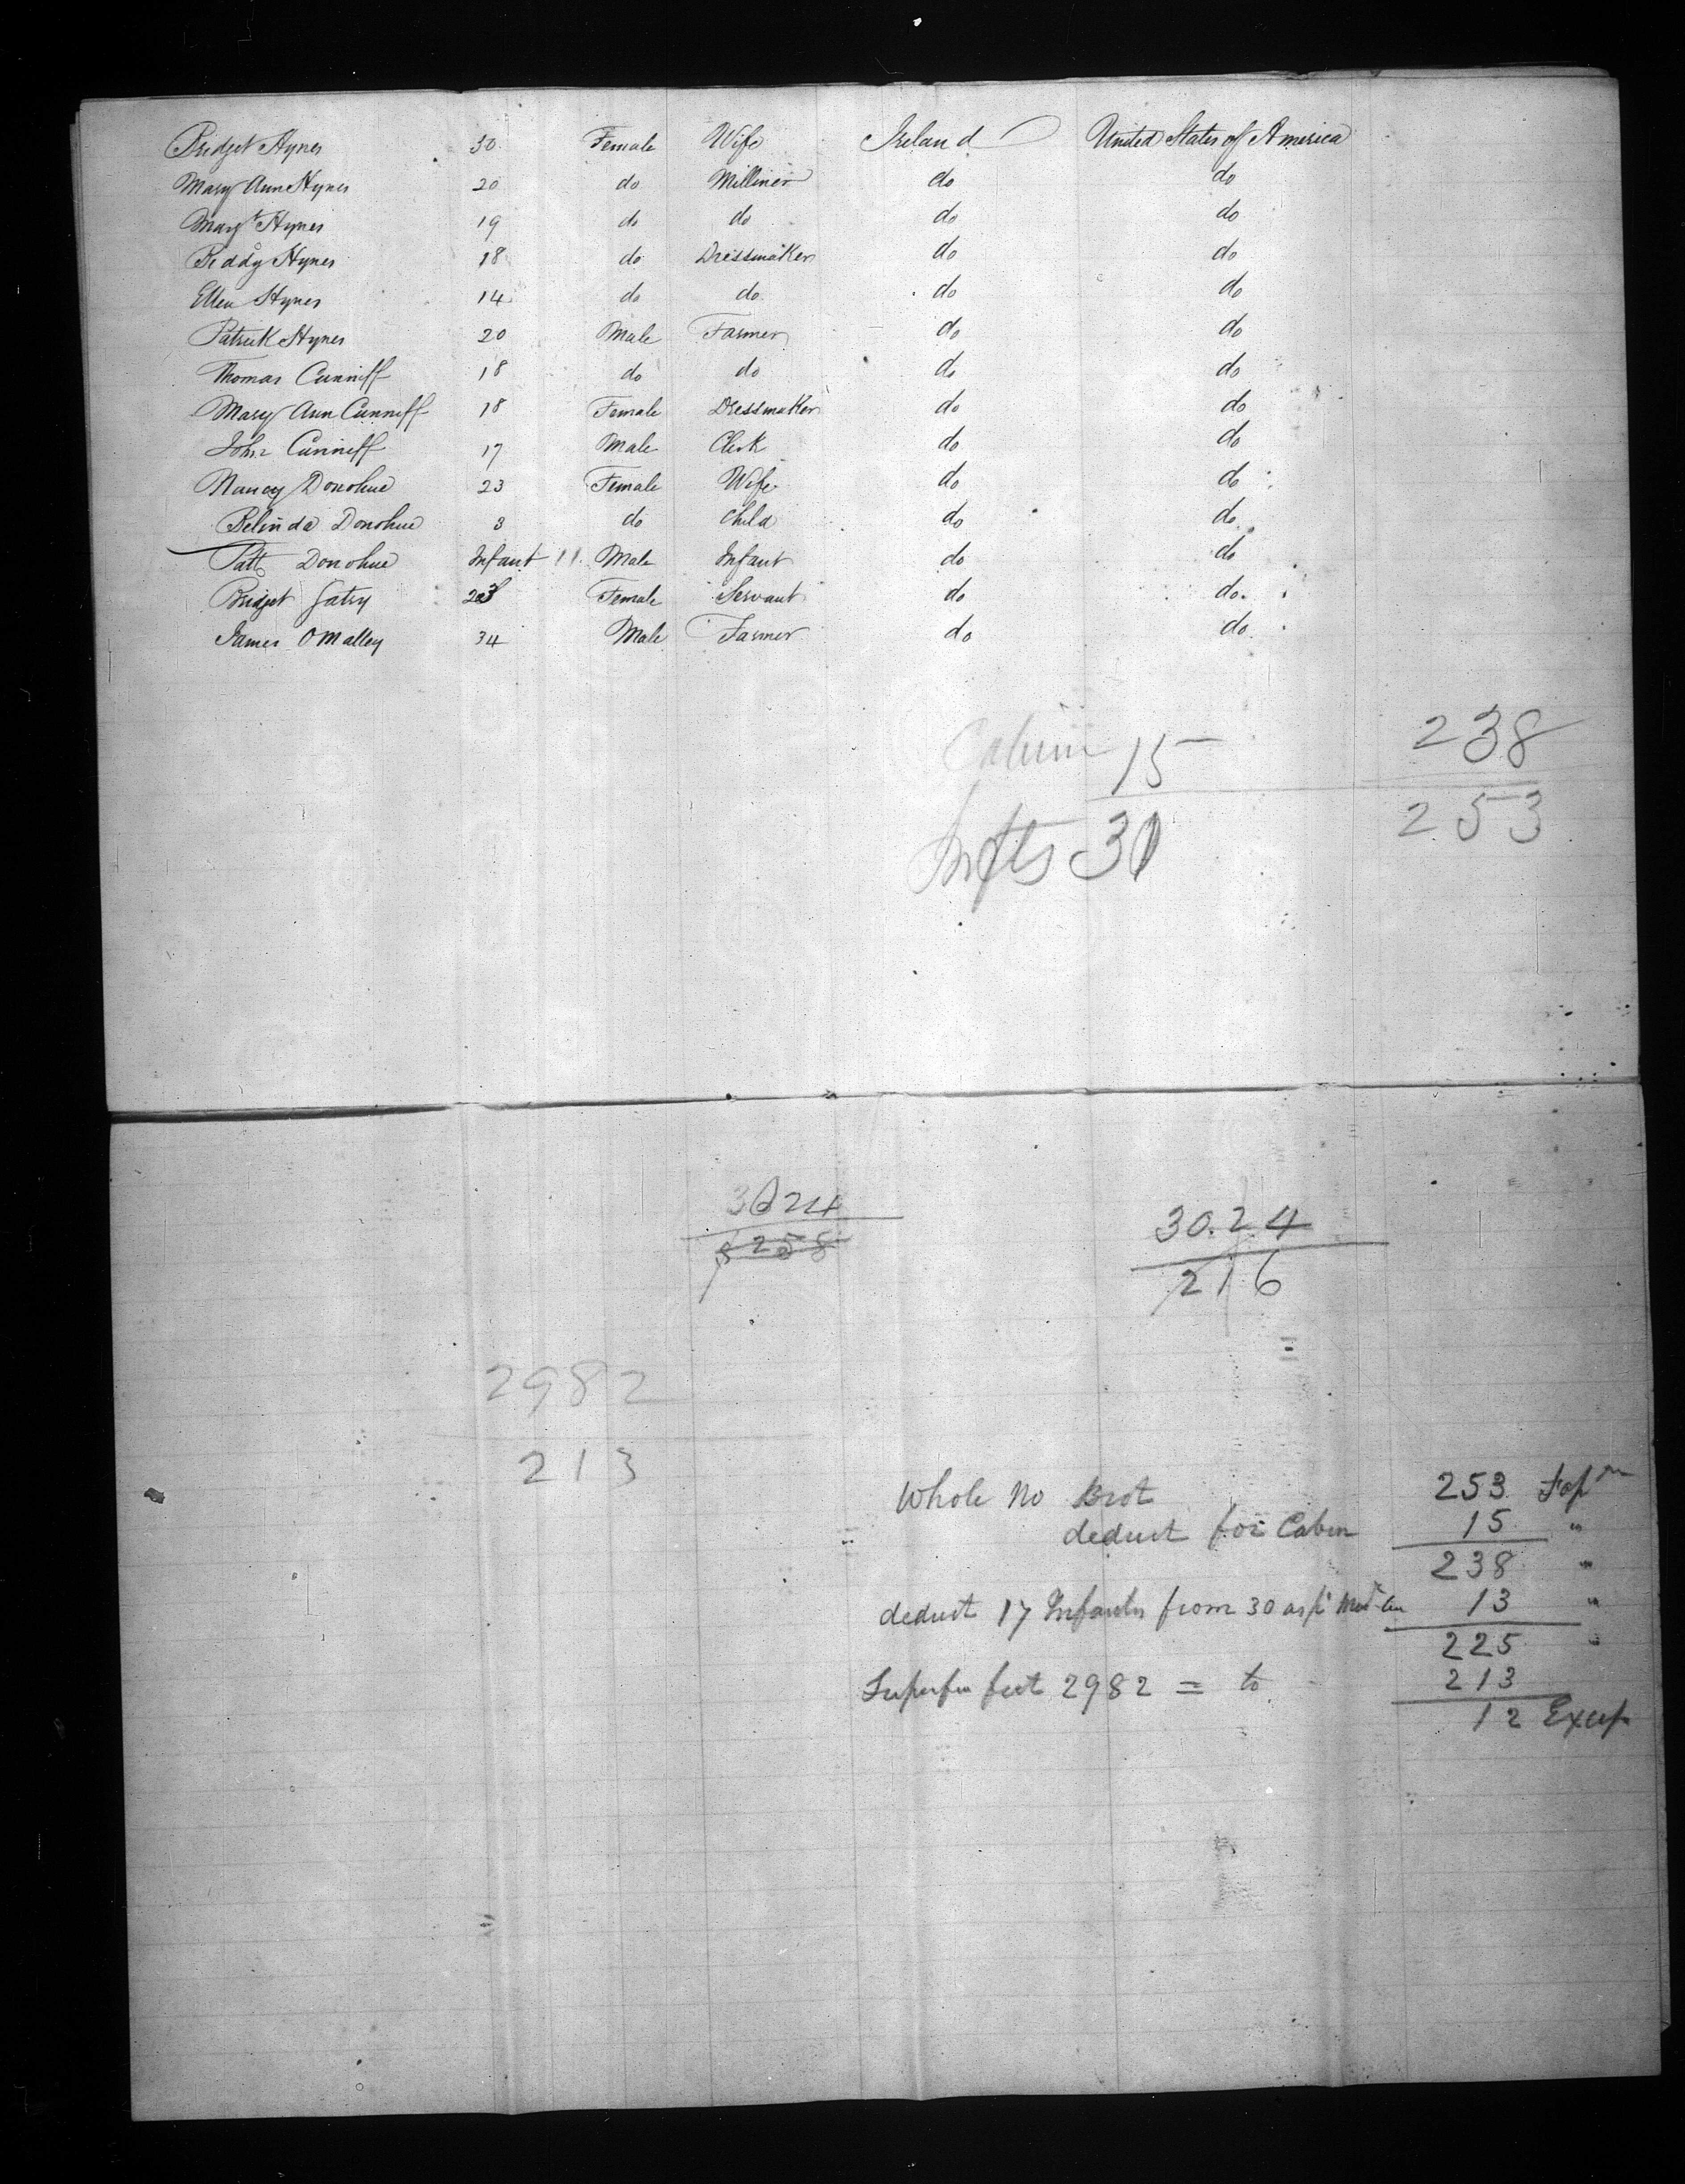 Bridget Hynes 30 Female Wife Ireland United States of America
Mary Ann Hynes 20 do Milliner do do
Margt Hynes 19 do do do do
Biddy Hynes 18 do Dressmaker do do
Ellen Hynes 14 do do do do
Patrick Hynes 20 Male Farmer do do
Thomas Cunniff 18 do do do do
Mary Ann Cunniff 18 Female Dressmaker do do
John Cunniff 17 Male Clerk do do
Nancy Donohue 23 Female Wife do do
Belinda Donohue 3 do Child do do
Patt Donohue Infant 11 Male Infant do do
Bridget 23 Female Servant do do
James OMalley 34 Male Farmer do do
Cabin 15 238
253
Infts 30
3024
3258
30.24
216
2982
213
Whole No Brot 253
deduct for Cabin 15 "
238 "
deduct 17 Infants from 30 as pr 13 "
225 "
feet 2982 = to 213
12 Excess